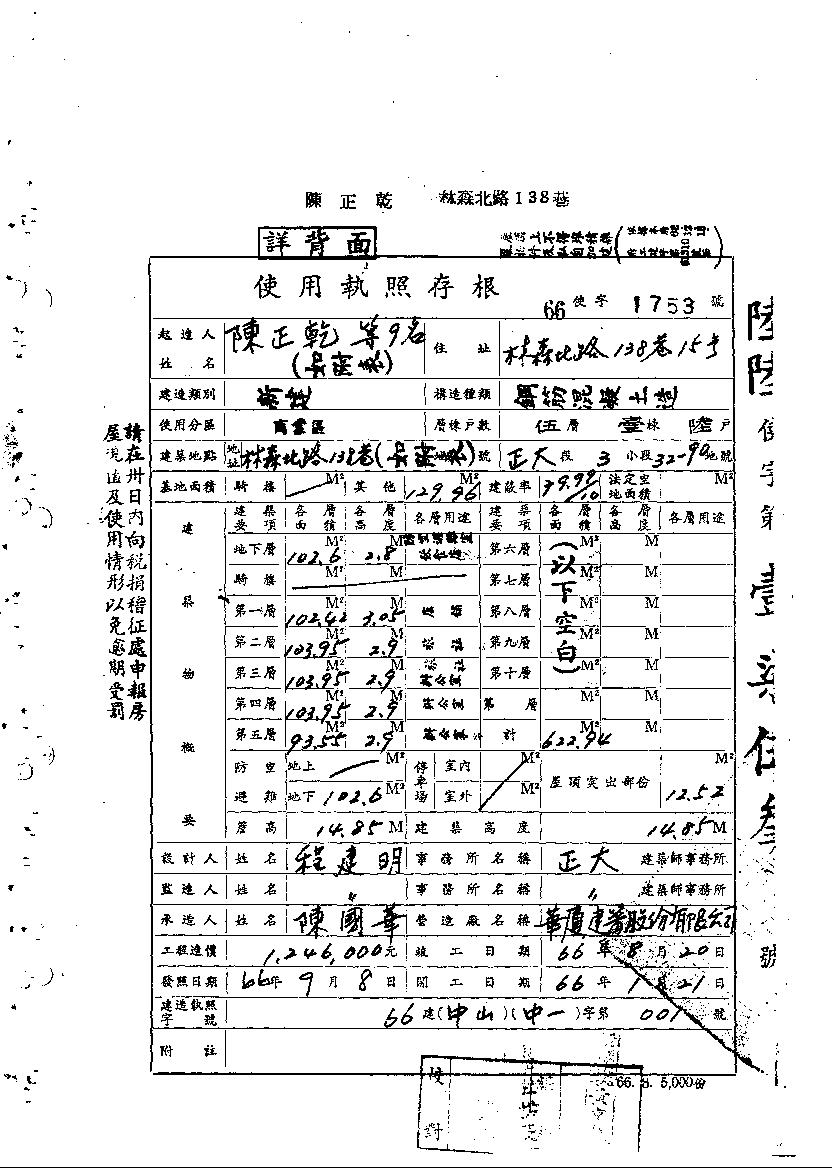 陳正乾 林森北路138巷
詳背面
使用執照存根
66使字1753號
起造人姓名 陳正乾等9名 住址 林森北路138巷15号
建造類別 新建 構造種類 鋼筋混凝土造
使用分區 商業區 層棟戶數 伍層壹棟陸戶
建築地點 地址 林森北路138巷 號 正大段3小段32-90地號
基地面積 騎樓 M² 其他 129.96 M² 建蔽率 法定空地面積 M²
建築物概要
建築要項 各層面積 各層高度 各層用途 建築要項 各層面積 各層高度 各層用途
地下層 102.6 M² 2.8 M 第六層 M² M
騎樓 M² M 第七層 M² M
第一層 102.42 M² 3.05 M 第八層 M² M
第二層 103.95 M² 2.9 M 第九層 M² M
第三層 103.95 M² 2.9 M 第十層 M² M
第四層 103.95 M² 2.9 M 辦公室 第 層 M² M
第五層 93.55 M² 2.9 M 辦公室 計 622.94 M² M
(以下空白)
防空避難 地上 M² 停車場 室內 M² 屋頂突出部份 12.52 M²
地下 102.6 M² 室外 M²
簷高 14.85 M 建築高度 14.85 M
設計人 姓名 程建明 事務所名稱 正大 建築師事務所
監造人 姓名 〃 事務所名稱 〃 建築師事務所
承造人 姓名 陳國華 營造廠名稱 華廈建築股份有限公司
工程造價 1,246,000元 竣工日期 66年8月20日
發照日期 66年9月8日 開工日期 66年1月21日
建造執照字號 66建(中山)(中一)字第001號
附註
66.8.5,000份
校對
請在卅日內向稅捐稽征處申報房
屋現值及使用情形以免逾期受罰
陸陸使字第壹柒伍叁號